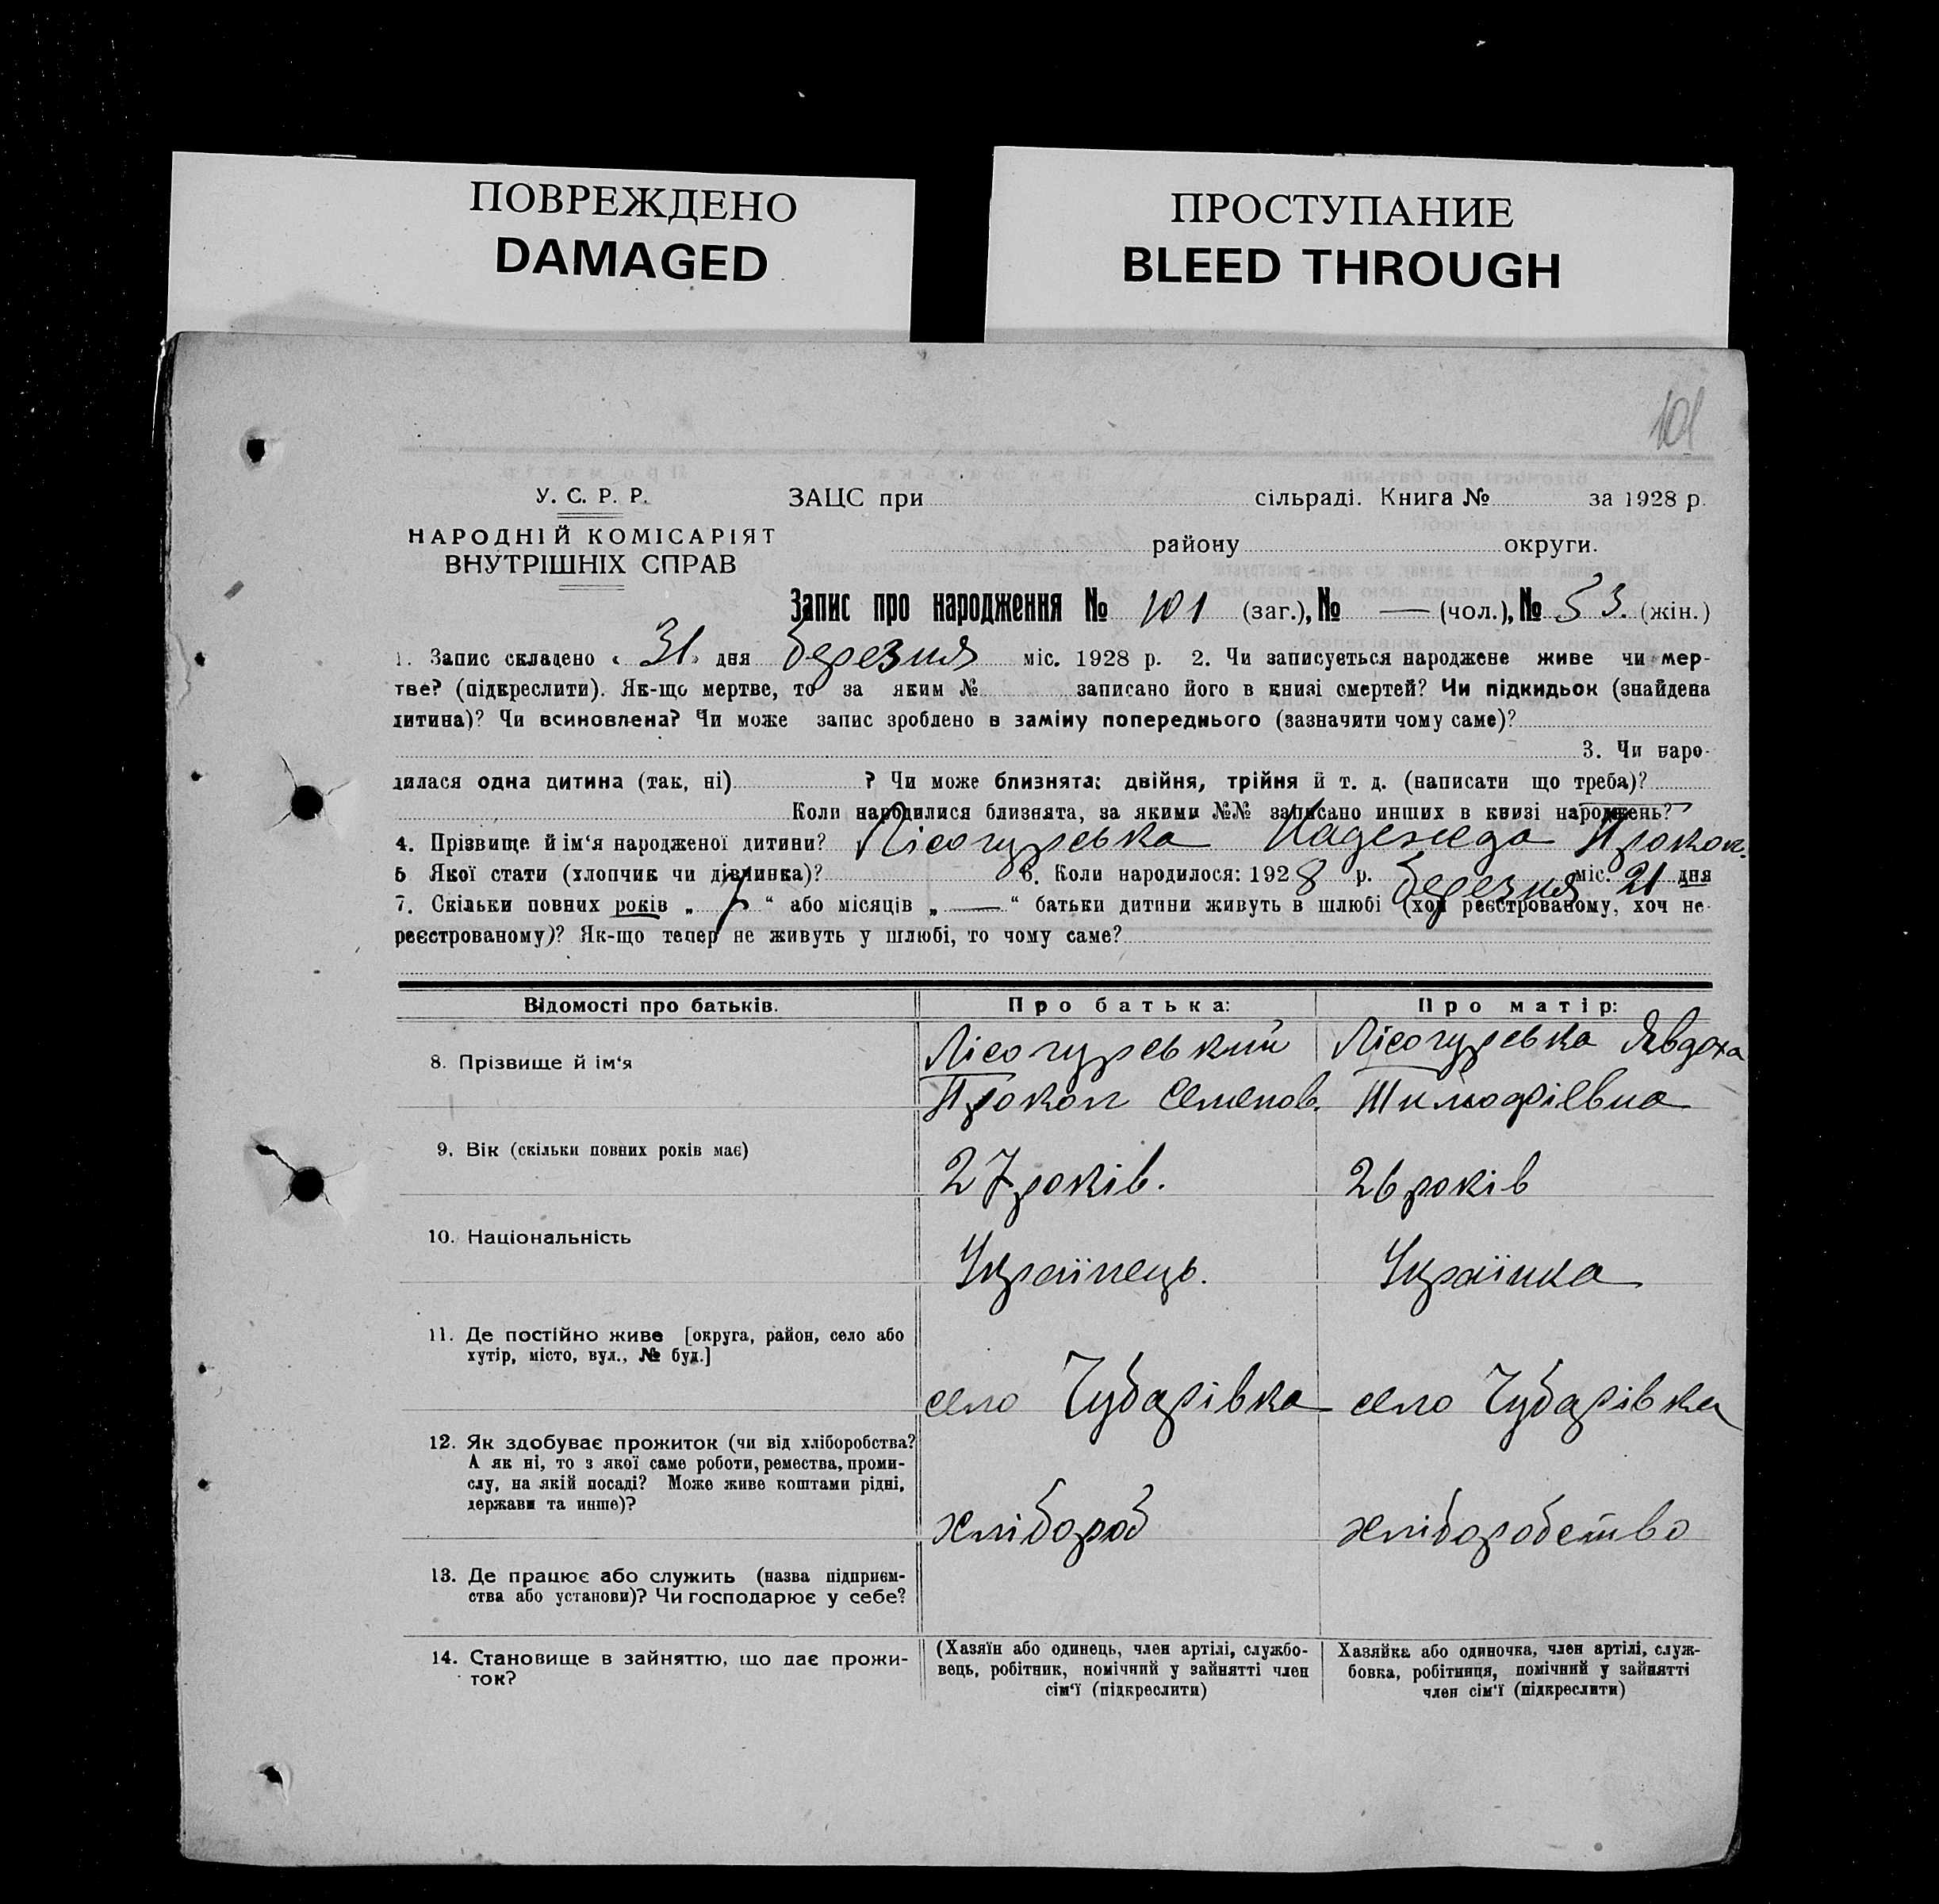 ПОВРЕЖДЕНО
DAMAGED
ПРОСТУПАНИЕ
BLEED THROUGH
101
У. С. Р. Р.
НАРОДНІЙ КОМІСАРІЯТ
ВНУТРІШНІХ СПРАВ
ЗАЦС при сільраді. Книга № за 1928 р.
району округи.
Запис про народження № 101 (заг.), № — (чол.), № 53. (жін.)
1. Запис складено « 31 » дня березня міс. 1928 р. 2. Чи записується народжене живе чи мер-
тве? (підкреслити). Як-що мертве, то за яким № записано його в книзі смертей? Чи підкидьок (знайдена
дитина)? Чи всиновлена? Чи може запис зроблено в заміну попереднього (зазначити чому саме)?
3. Чи наро-
дилася одна дитина (так, ні) ? Чи може близнята: двійня, трійня й т. д. (написати що треба)?
Коли народилися близнята, за якими №№ записано инших в книзі народжень?
4. Прізвище й ім‘я народженої дитини? Лісогурська Надежда Прокоп.
5 Якої стати (хлопчик чи дівчинка)? 6. Коли народилося: 1928 р. березня міс. 21 дня
7. Скільки повних років „ 7 “ або місяців „ — “ батьки дитини живуть в шлюбі (хоч реєстрованому, хоч не-
реєстрованому)? Як-що тепер не живуть у шлюбі, то чому саме?
Відомості про батьків. Про батька: Про матір:
8. Прізвище й ім‘я Лісогурський Лісогурська Явдоха
Прокоп Семенов. Тимофіівна
9. Вік (скільки повних років має) 27 років. 26 років
10. Національність Українець. Українка
11. Де постійно живе [округа, район, село або
хутір, місто, вул., № буд.]
село Чубарівка село Чубарівка
12. Як здобуває прожиток (чи від хліборобства?
А як ні, то з якої саме роботи, ремества, проми-
слу, на якій посаді? Може живе коштами рідні,
держави та инше)?
хлібороб хліборобство
13. Де працює або служить (назва підприєм-
ства або установи)? Чи господарює у себе?
14. Становище в зайняттю, що дає прожи-
ток?
(Хазяїн або одинець, член артілі, службо-
вець, робітник, помічний у зайнятті член
сім‘ї (підкреслити)
Хазяйка або одиночка, член артілі, служ-
бовка, робітниця, помічний у зайнятті
член сім‘ї (підкреслити)